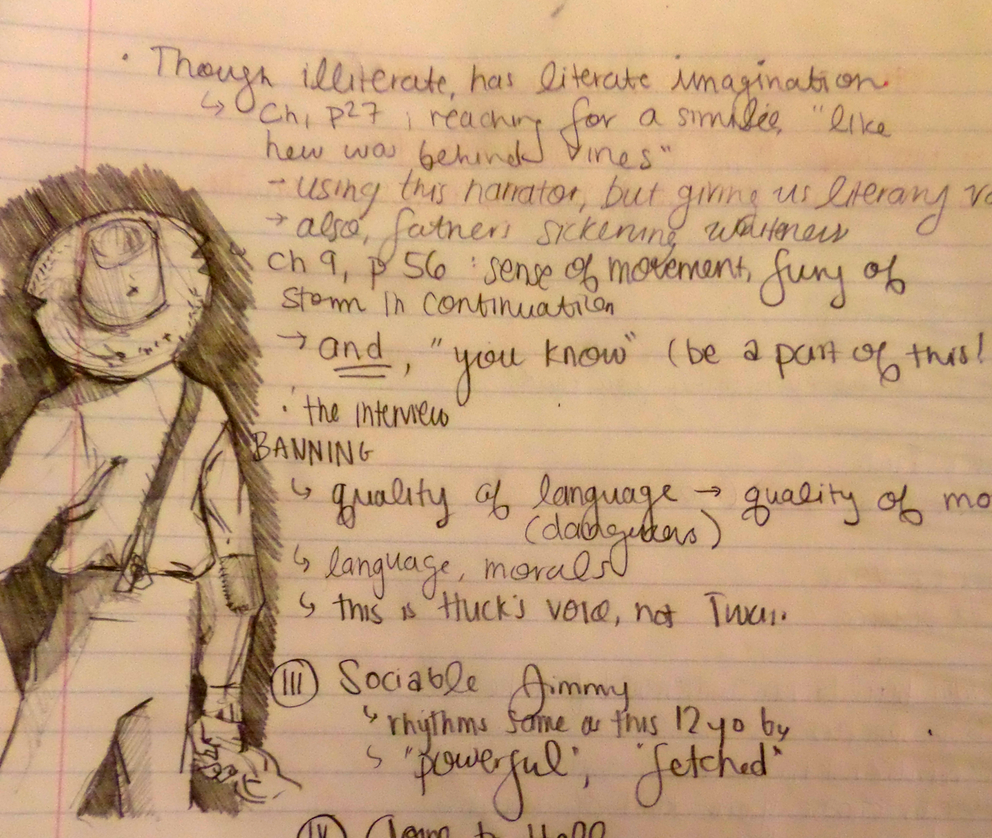 · Though illiterate, has literate imagination.
↳ Ch, p27 ; reaching for a similie, "like
hew was behind vines"
- using this narrator, but giving us literary
→ also, father's sickening whiteness
Ch 9, p 56 : sense of movement, fury of
storm in continuation
→ and, "you know" (be a part of this!
· the interview
BANNING
↳ quality of language → quality of mo
(dangerous)
↳ language, morals
↳ this is Huck's voice, not Twai.
III Sociable Jimmy
↳ rhythms same as this 12 yo by
↳ "powerful", "fetched"
IV to Hell